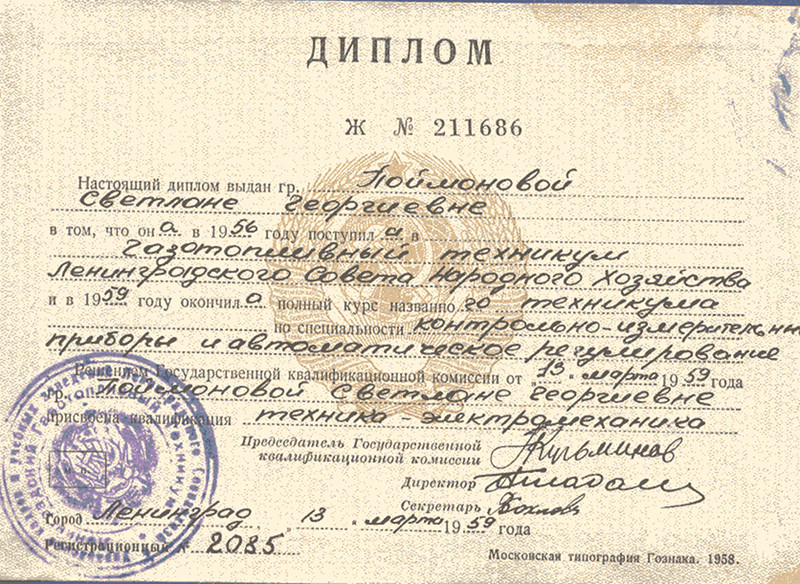 ДИПЛОМ
Ж № 211686
Настоящий диплом выдан гр. Поймоновой
Светлане Георгиевне
в том, что она в 1956 году поступила в
газотопливный техникум
Ленинградского Совета Народного Хозяйства
и в 1959 году окончила полный курс названного техникума
по специальности контрольно-измерительн
приборы и автоматическое регулирование
Решением Государственной квалификационной комиссии от „13" марта 1959 года
гр. Поймоновой Светлане Георгиевне
присвоена квалификация техника электромеханика
Председатель Государственной
квалификационной комиссии
Директор
Секретарь
Город Ленинград „13" марта 1959 года
Регистрационный № 2085
Московская типография Гознака. 1958.